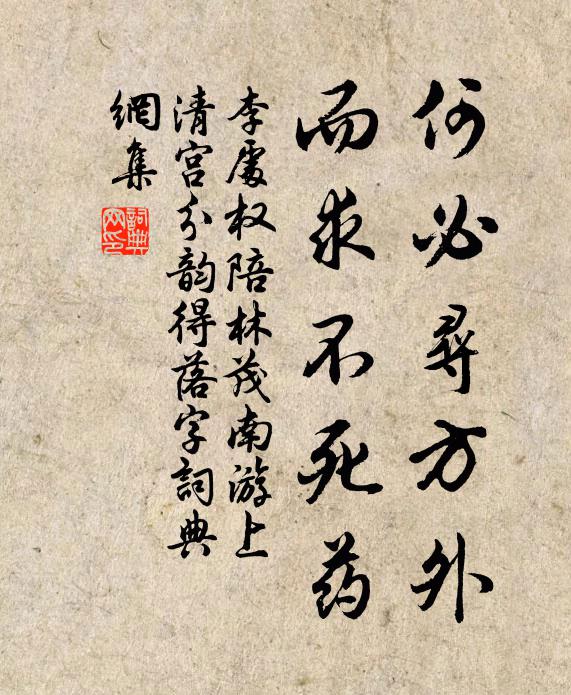 何必尋方外
而求不死药
李處权陪林茂南游上
清宫分韵得落字詞典
網集
詞典
网印